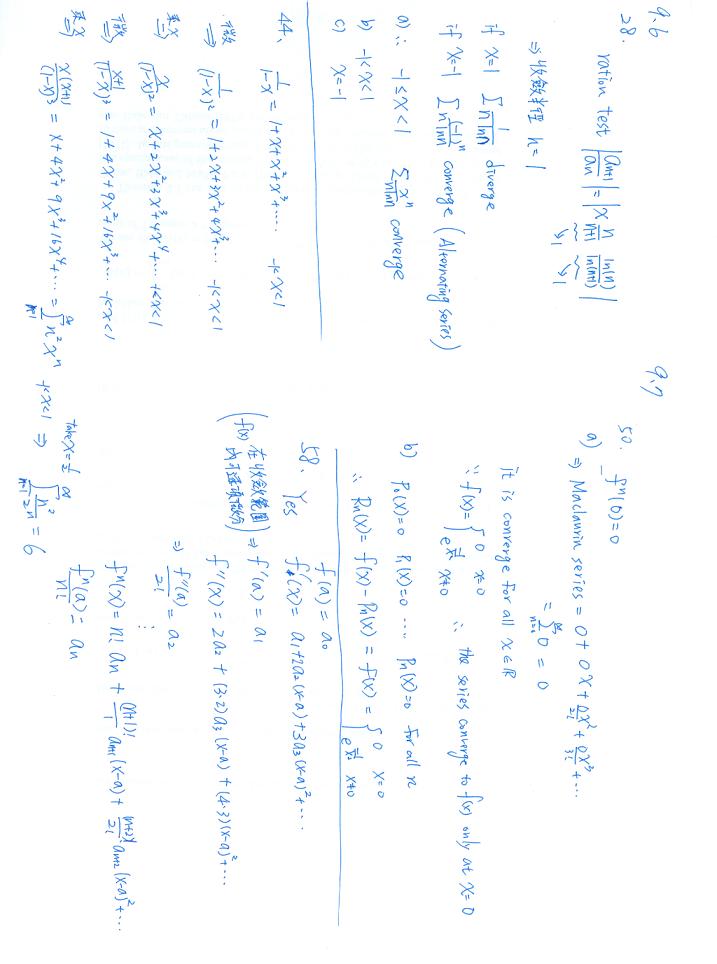 9.6
28.
ration test |a_{n+1}/a_n| = |x n/(n+1) ln(n)/ln(n+1)|
↘1 ↘1
⇒ 收斂半徑 h=1
if x=1 Σ 1/(n ln n) diverge
if x=-1 Σ (-1)^n/(n ln n) converge (Alternating series)
a) ∴ -1≤x<1 Σ x^n/(n ln n) converge
b) -1<x<1
c) x=-1
44、
1/(1-x) = 1+x+x²+x³+..... -1<x<1
微⇒ 1/(1-x)² = 1+2x+3x²+4x³+... -1<x<1
乘x⇒ x/(1-x)² = x+2x²+3x³+4x⁴+... -1<x<1
微⇒ (x+1)/(1-x)³ = 1+4x+9x²+16x³+... -1<x<1
乘x⇒ x(x+1)/(1-x)³ = x+4x²+9x³+16x⁴+... = Σ_{n=1}^∞ n²x^n -1<x<1 ⇒ take x=1/2 Σ_{n=1}^∞ n²/2^n = 6
9.7
50. f^n(0)=0
a) ⇒ Maclaurin series = 0+0x+0x²/2!+0x³/3!+...
= Σ_{n=0}^∞ 0 = 0
it is converge for all x∈R
∵ f(x)= { 0 x=0
e^{-1/x²} x≠0 ∴ the series converge to f(x) only at x=0
b) P₀(x)=0 P₁(x)=0 .... Pn(x)=0 for all n
∴ Rn(x) = f(x)-Pn(x) = f(x) = { 0 x=0
e^{-1/x²} x≠0
58、 Yes f(a) = a₀
f'(x) = a₁+2a₂(x-a)+3a₃(x-a)²+....
(f(x)在收斂範圍內可逐項微分) ⇒ f'(a) = a₁
f''(x) = 2a₂+(3·2)a₃(x-a)+(4·3)(x-a)²+...
⇒ f''(a)/2! = a₂
⋮
f^n(x) = n! a_n + (n+1)!/1 a_{n+1}(x-a) + (n+2)!/2! a_{n+2}(x-a)²+...
f^n(a)/n! = a_n